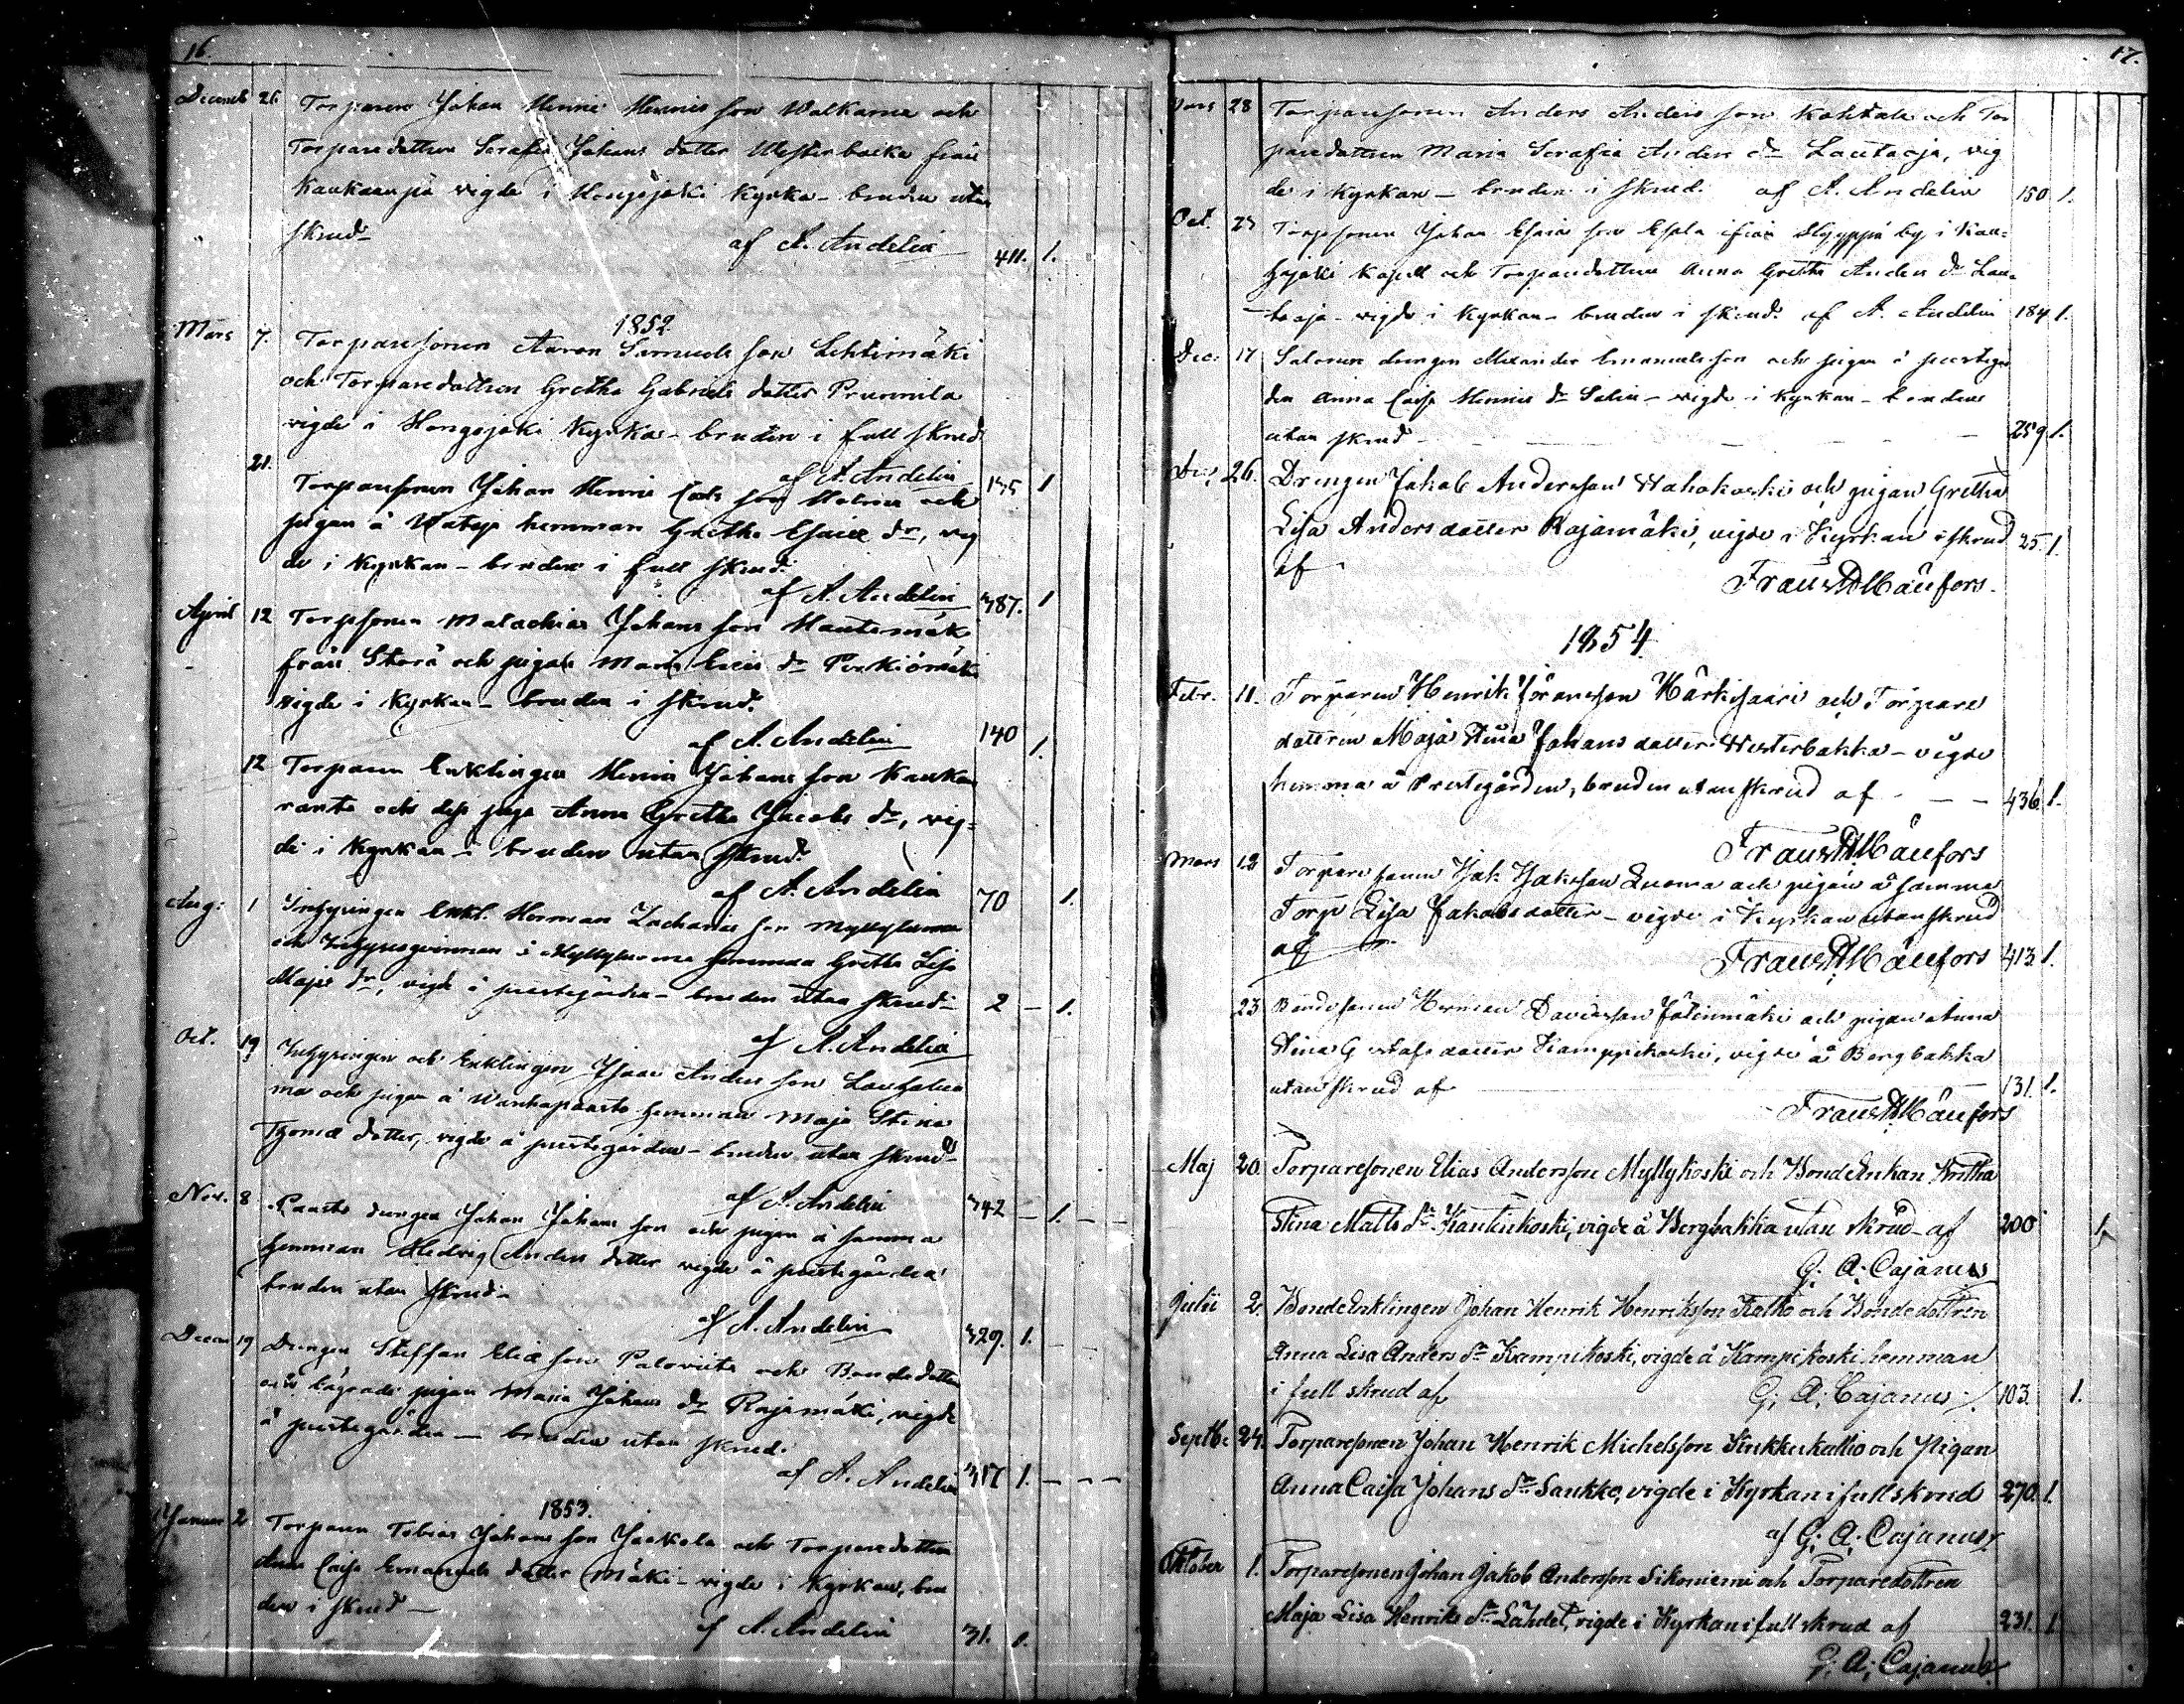 16.
Decemb 26 Torparen Johan Henric Henrics son Walkama och
Torparedottren Serafia Johans dotter Westerbacka från
Kankaanpä vigde i Hongojoki Kyrka - bruden utan
skrud - af A. Andelin 411. 1.
1852.
Mars 7. Torparesonen Aaron Samuels son Lehtimäki
och Torparedottren Gretha Gabriels dotter Prunnila
vigde i Hongojoki Kyrka - bruden i full skrud
af A. Andelin 135 1
21. Torparesonen Johan Henric son och
pigan å hemman Gretha Esaiæ dr, vig
de i Kyrkan - bruden i full skrud.
af A. Andelin 387. 1
April 12 Torpsonen Malachias Johans son Hautamäki
från Storå och pigan Maria Erics dr
vigde i Kyrkan - bruden i skrud.
af A. Andelin 140 1.
12 Torparen Enklingen Henric Johans son Kaukan
ranta och dess piga Anna Gretha Jacobs dr, vig=
de i Kyrkan - bruden utan skrud.
af A. Andelin 70 1.
Aug: 1 Inhysingen Enkl. Herman Zacharias son Myllyluoma
och Inhysesqvinnan i Myllyluoma hemman Gretha Lisa
Majas dr, vigde i prestegården - bruden utan skrud - 2 - 1.
af A. Andelin
Oct. 19 Inhysingen och Enklingen Isaac Anders son
ma och pigan å Wanhapaasto hemman Maja Stina
Thomæ dotter, vigde å prestegården - bruden utan skrud -
af A. Andelin 342 - 1. - -
Nov. 8 Paasto drengen Johan Johans son och pigan å samma
hemman Hedvig Anders dotter vigde å prestegården
bruden utan skrud -
af A. Andelin 329. 1. -
Decem 19 Drengen Steffan Eliæ son Paloviita och Bondedotten
och lägrade pigan Maria Johans dr Rajamäki, vigde
å prestegården - bruden utan skrud.
af A. Andelin 317 1. - - -
1853.
Januar 2 Torparen Tobias Johans son Jaakola och Torparedottren
Anna Caisa Emanuels dotter Mäki - vigde i Kyrkan, bru
den i skrud -
af A. Andelin 31. 1.
17.
Mars 28 Torparesonen Anders Anders son Kohtala och Tor
paredottren Maria Serafia Anders dr Lautaoja, vig
de i Kyrkan - bruden i skrud. af A. Andelin 150 1.
Oct. 23 Torpsonen Johan Esaiæ son ifrån by i Kau=
hajoki Kapell och Torparedottren Anna Gretha Anders dr Lau=
taoja - vigde i Kyrkan - bruden i skrud. af A. Andelin 184 1.
Dec: 17 drengen Alexander Emanuels son och pigan å prestegår
den Anna Caisa Henrics dr Salin - vigde i Kyrkan - bruden
utan skrud - 259 1.
Dec: 26. Drengen Jakob Andersson Wahakoski och pigan Gretha
Lisa Andersdotter Rajamäki, vigde i Kyrkan i skrud 25. 1.
af
Frans
1854
Febr. 11. Torparen Henrik Göransson Härkisaari och Torpare
dottren Maja Stina Johansdotter Westerbakka - vigde
hemma å Prestegården, bruden utan skrud af - - - 436. 1.
Frans
Mars 12 Torparesonen Jak. Jaksson Luoma och pigan å samma
Torp Lisa Jakobsdotter - vigde i Kyrkan utan skrud
af
Frans 413 1.
23 Bondesonen Herman Davidsson och pigan Anna
Stina Gustafsdotter Kamppikoski, vigde å Bergbakka
utan skrud af 131. 1.
Frans
Maj 20. Torparesonen Elias Andersson Myllykoski och BondeEnkan Gretha
Stina Matts dr Kantinkoski, vigde å Bergbakka utan skrud - af 200 1
G. A. Cajanus
Julii 2. BondeEnklingen Johan Henrik Henriksson Katko och Bondedottren
Anna Lisa Anders dr Kampikoski, vigde å Kampikoski hemman
i full skrud af G. A. Cajanus 103. 1.
Septb: 24. Torparesonen Johan Henrik Michelsson Kinkkukallio och Pigan
Anna Caisa Johans dr Saukko, vigde i Kyrkan i full skrud 270. 1.
af G. A. Cajanus
Oktober 1. Torparesonen Johan Jakob Andersson Sikoniemi och Torparedottren
Maja Lisa Henriks dr Lähdet, vigde i Kyrkan i full skrud af 231. 1.
G. A. Cajanus